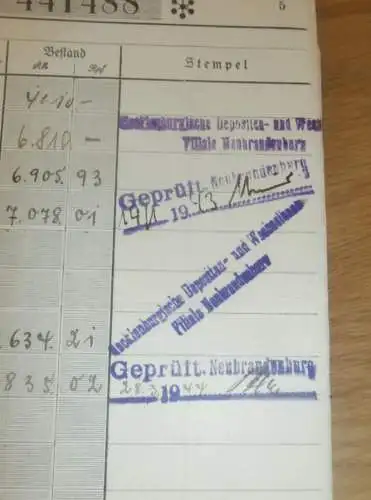 441488 5
Bestand Stempel
RM Rpf
6.810 -
Mecklenburgische Depositen- und Wech
Filiale Neubrandenburg
6.905. 93
Geprüft. Neubrandenburg
7.078. 01
19
Mecklenburgische Depositen- und Wechselbank
Filiale Neubrandenburg
.634. 21
Geprüft. Neubrandenburg
835. 02 28.3 1944